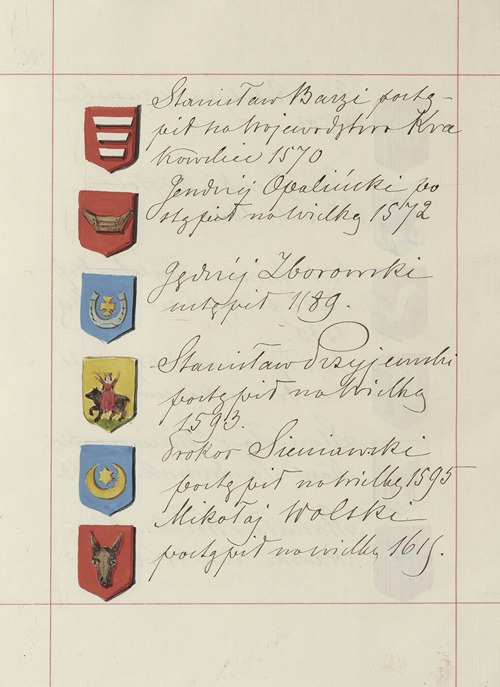 Stanisław Barzi postą-
pił na Wojewodztwo Kra
kowskie 1570
Jendrzéj Opaliński po
stąpił na wielką 1572
Jędrzéj Zborowski
ustąpił 1589.
Stanisław Przyjemski
postąpił na Wielką
1593.
Prokop Sieniawski
postąpił na wielką 1595
Mikołaj Wolski
postąpił na wielką 1615.